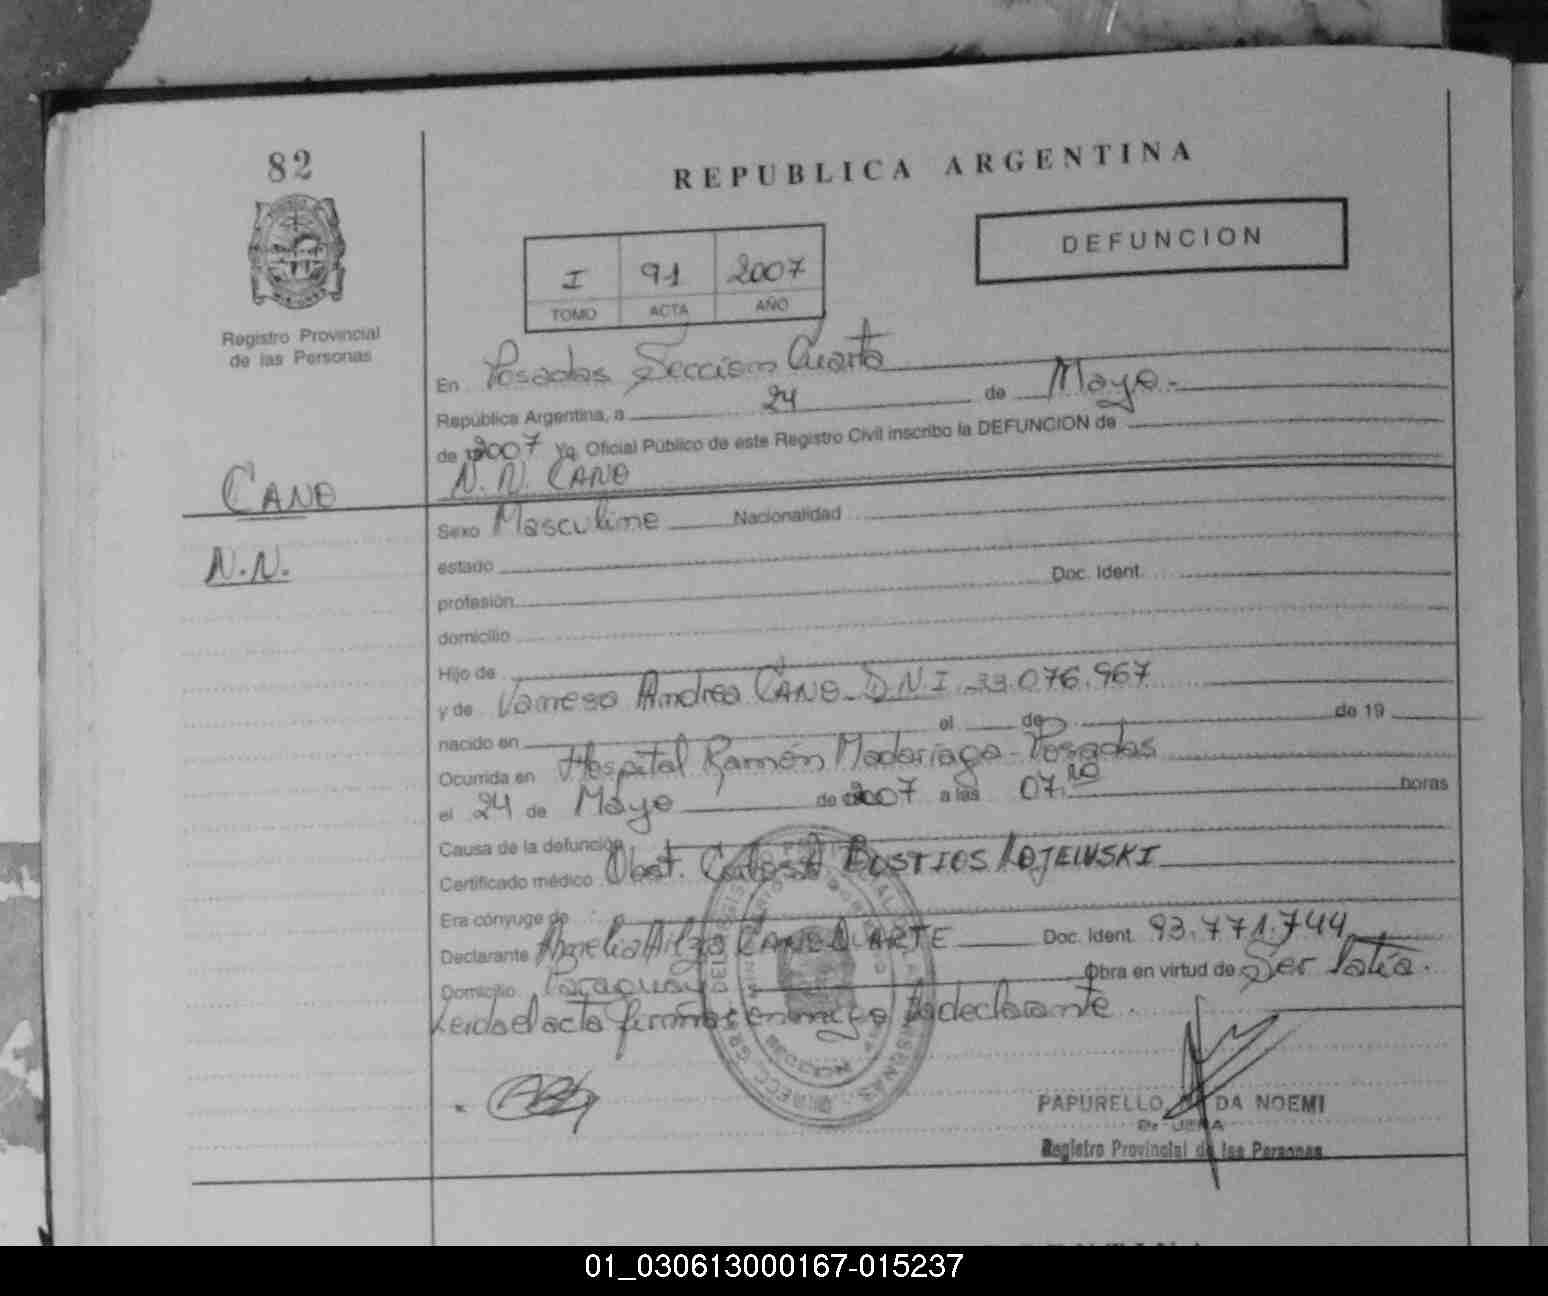 82
REPUBLICA ARGENTINA
DEFUNCION
I 91 2007
TOMO ACTA AÑO
Registro Provincial
de las Personas
En Posadas Sección Cuarta
República Argentina, a 24 de Mayo.-
de 2007 Yo, Oficial Público de este Registro Civil inscribo la DEFUNCION de
CANO N.N. CANO
Sexo Masculino Nacionalidad
N.N.
estado
profesión Doc. Ident.
domicilio
Hijo de
y de Vanesa Andrea CANO D.N.I. 33.076.967
nacido en el de de 19
Ocurrida en Hospital Ramón Madariaga - Posadas
el 24 de Mayo de 2007 a las 07. horas
Causa de la defunción
Certificado médico Obst. Carlos A
Era cónyuge de
Declarante CANO DUARTE Doc. Ident. 93.771.744
Domicilio Paraguay Obra en virtud de Ser
Leida el acta firma conmigo la declarante
PAPURELLO DA NOEMI
Registro Provincial de las Personas
01_030613000167-015237